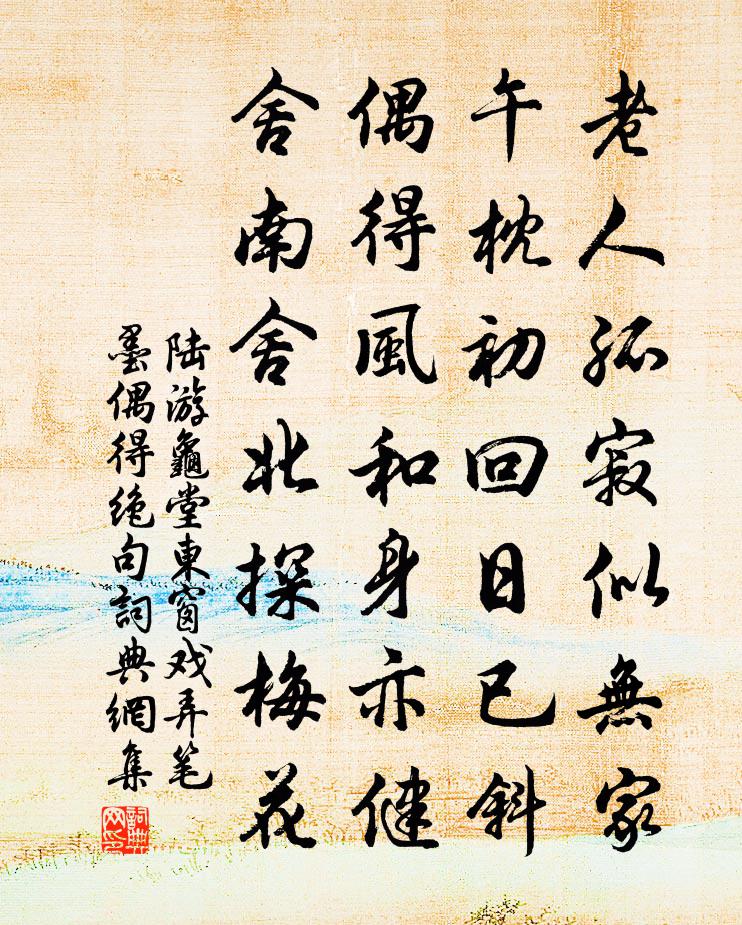 老人孤寂似無家
午枕初回日已斜
偶得風和身亦健
舍南舍北探梅花
陆游龜堂東窗戏弄笔
墨偶得绝句詞典網集